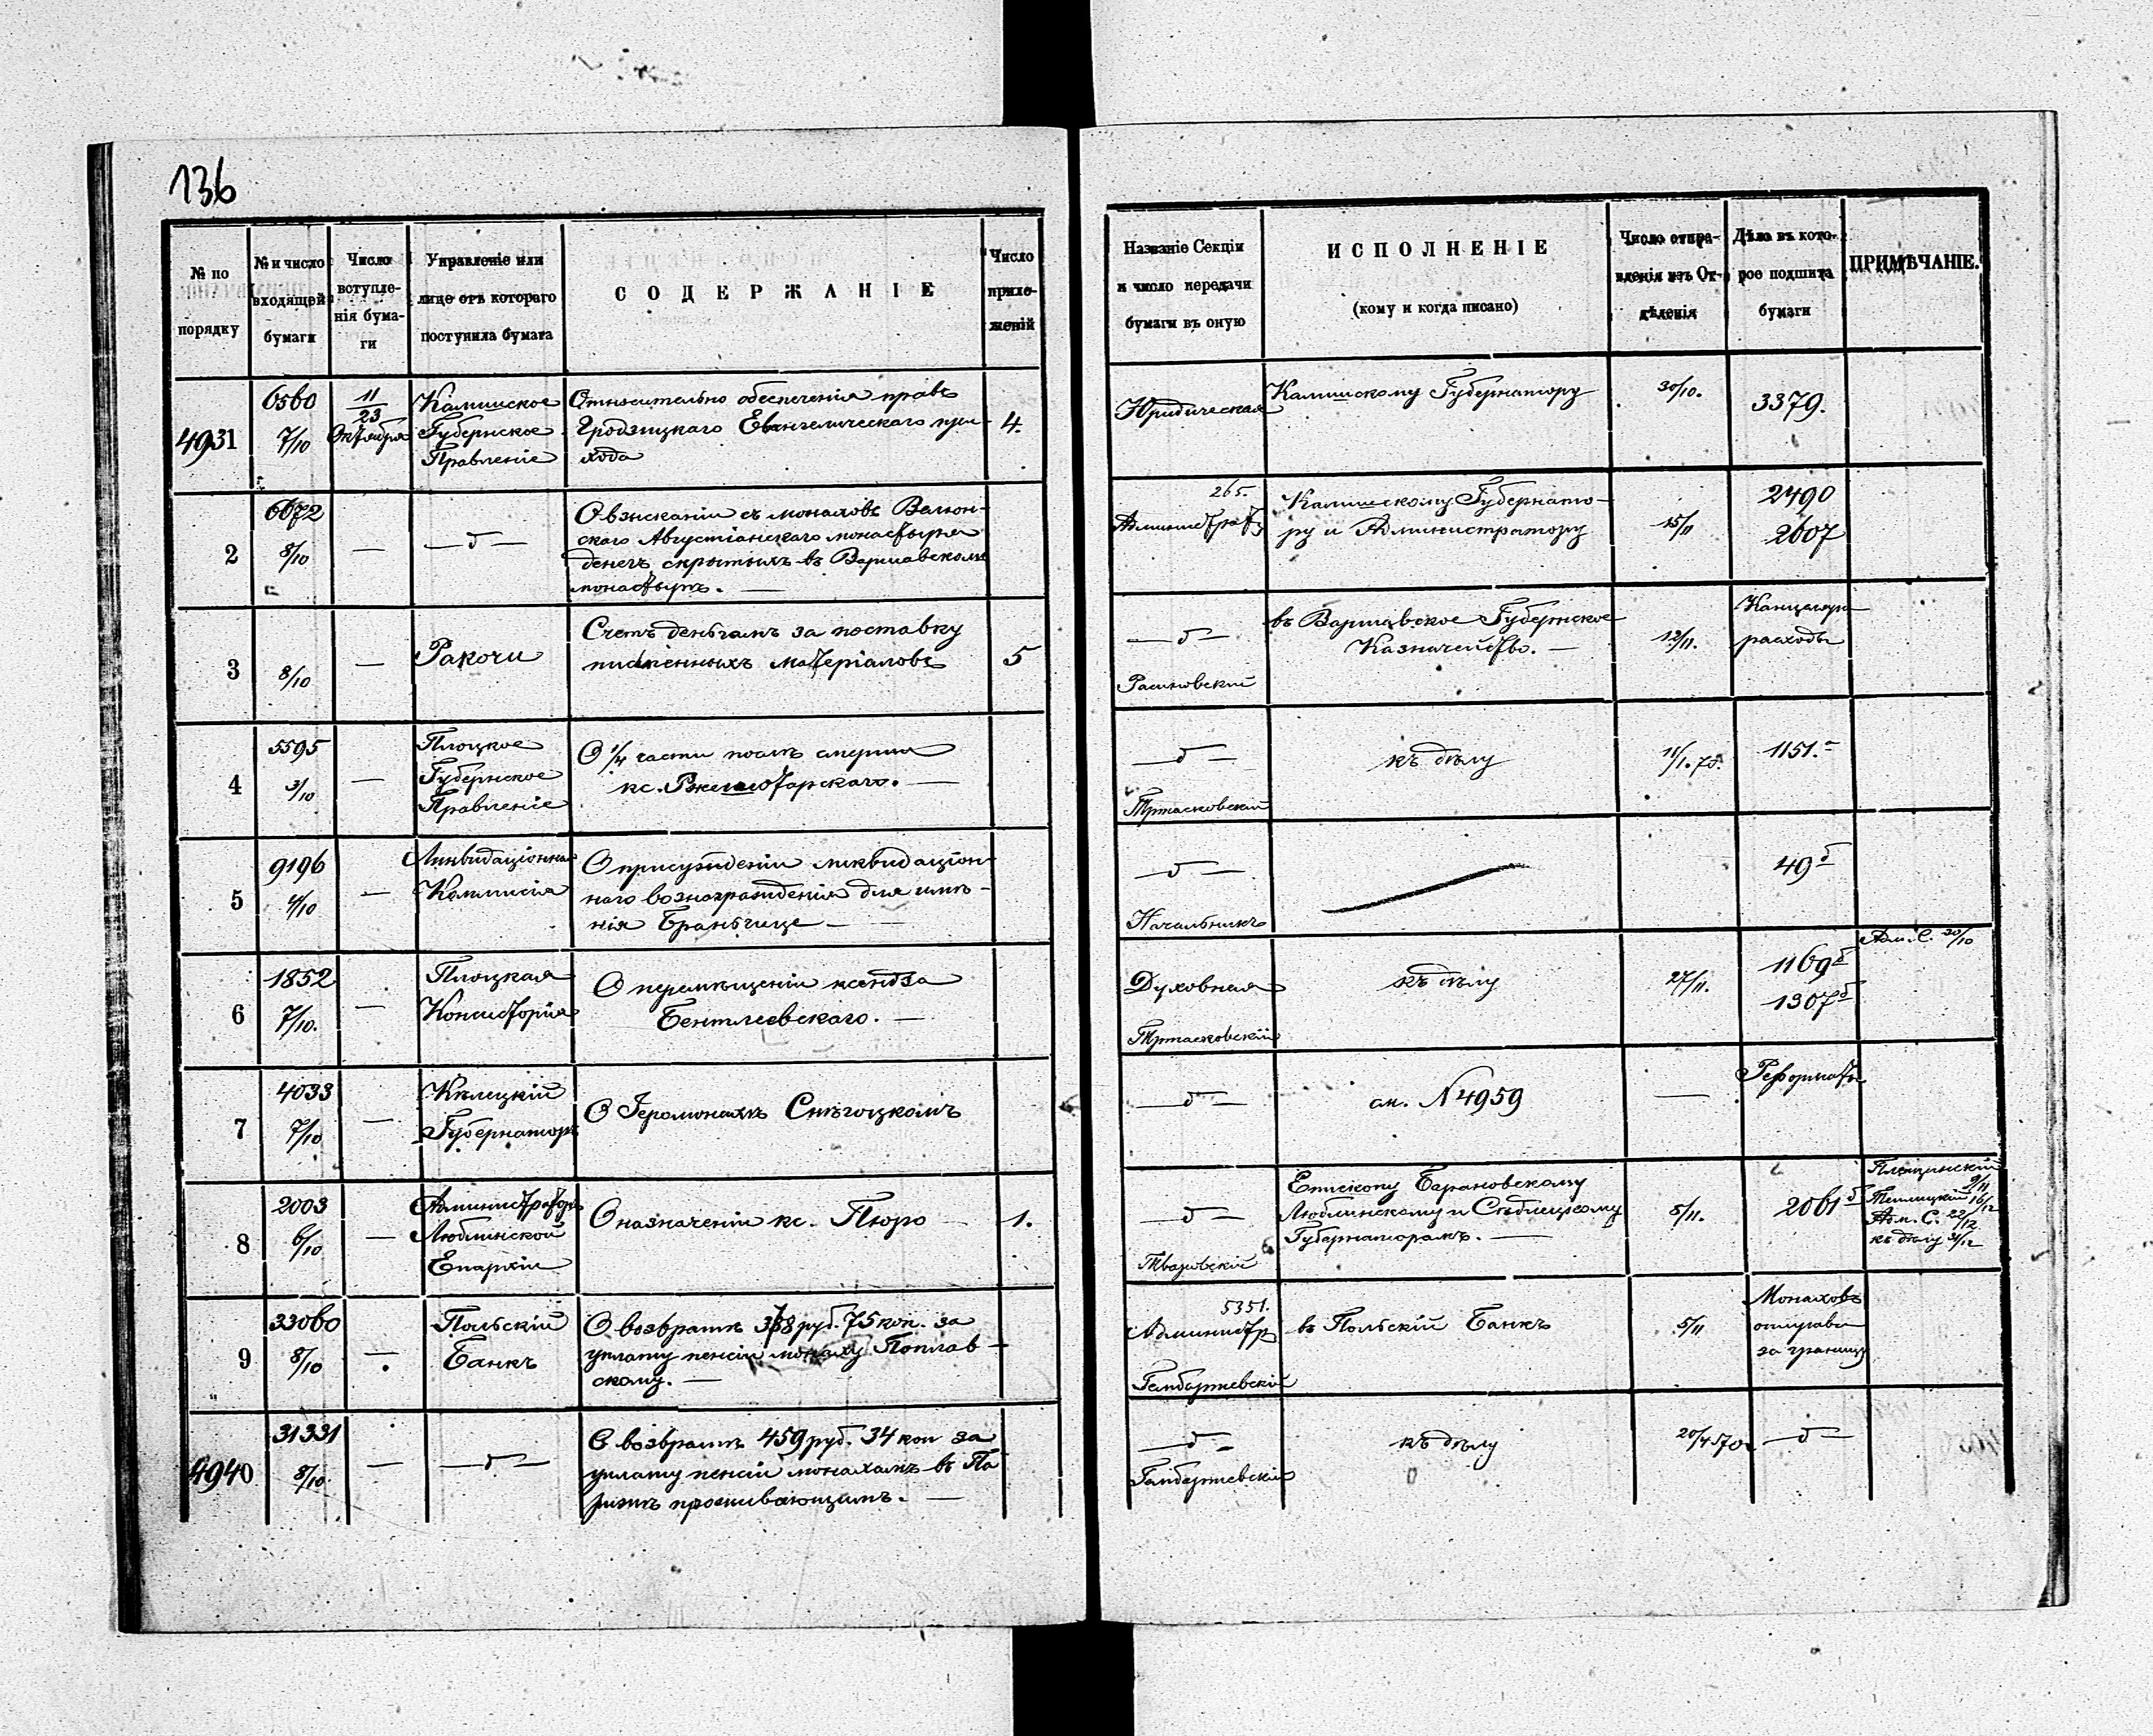 136
№ по порядку
№ и число входящей бумаги
Число вступле-нія бума-ги
Управленіе или лице отъ котораго поступила бумага
СОДЕРЖАНІЕ
Число прило-женій
Названіе Секціи и число передачи бумаги въ оную
ИСПОЛНЕНІЕ
(кому и когда писано)
Число отпра-вленія изъ От-дѣленія
Дѣло въ кото-рое подшита бумаги
ПРИМѢЧАНІЕ.
4931
6560
7/10
11/23
Октября
Калишское
Губернское
Правленіе
Относительно обеспеченія правъ
Гродзицкаго Евангелическаго при-
хода
4.
Юридическая
Калишскому Губернатору
30/10.
3379.
2
6672
8/10
—
—δ—
О взысканіи съ монаховъ Велюн-
скаго Августіанскаго монастыря
денегъ, скрытыхъ въ Варшавскомъ
монастырѣ. —
265.
Администрат
Калишскому Губернато-
ру и Администратору
15/11
2490
2607
3
8/10
—
Ракочи
Счетъ деньгамъ за поставку
письменныхъ матеріаловъ
5
—δ—
въ Варшавское Губернское
Казначейство. —
12/11.
расходы
4
5595
3/10
—
Плоцкое
Губернское
Правленіе
О 1/4 части послѣ смерти
кс.
—δ—
къ дѣлу
11/1.
1151.
5
9196
4/10
—
Ликвидаціонная
Коммисія
О присужденіи ликвидаціон-
наго вознагражденія для имѣ-
нія Браньчице —
—δ—
Начальникъ
49 δ
6
1852
7/10.
—
Плоцкая
Консисторія
О перемѣщеніи ксендза
Бентлевскаго. —
Духовная
къ дѣлу
27/11.
1169 δ
1307 δ
Адм. С. 30/10
7
4033
7/10
—
Кѣлецкій
Губернаторъ
О Іеромонахѣ Снѣгоцкомъ
—δ—
см. N 4959
—
Реформаты
8
2003
6/10
—
Администраторъ
Люблинской
Епархіи
О назначеніи кс. Пюро —
1.
—δ—
Епископу Барановскому
Люблинскому и Сѣдлецкому
Губернаторамъ. —
5/11.
2061 δ
9/11
16/12
Адм. С. 22/12
къ дѣлу 31/12
9
33060
8/10
—
Польскій
Банкъ
О возвратѣ 378 руб. 75 коп. за
уплату пенсіи монаху Поплав-
скому. —
5351.
Администр
Гембаржевскій
въ Польскій Банкъ
5/11
Монаховъ
за границу
4940
31331
8/10
—
—δ—
О возвратѣ 459 руб. 34 коп за
уплату пенсіи монахамъ въ Па
рижѣ проживающимъ. —
—δ—
Гембаржевскій
къ дѣлу
20/4 70.
—δ—